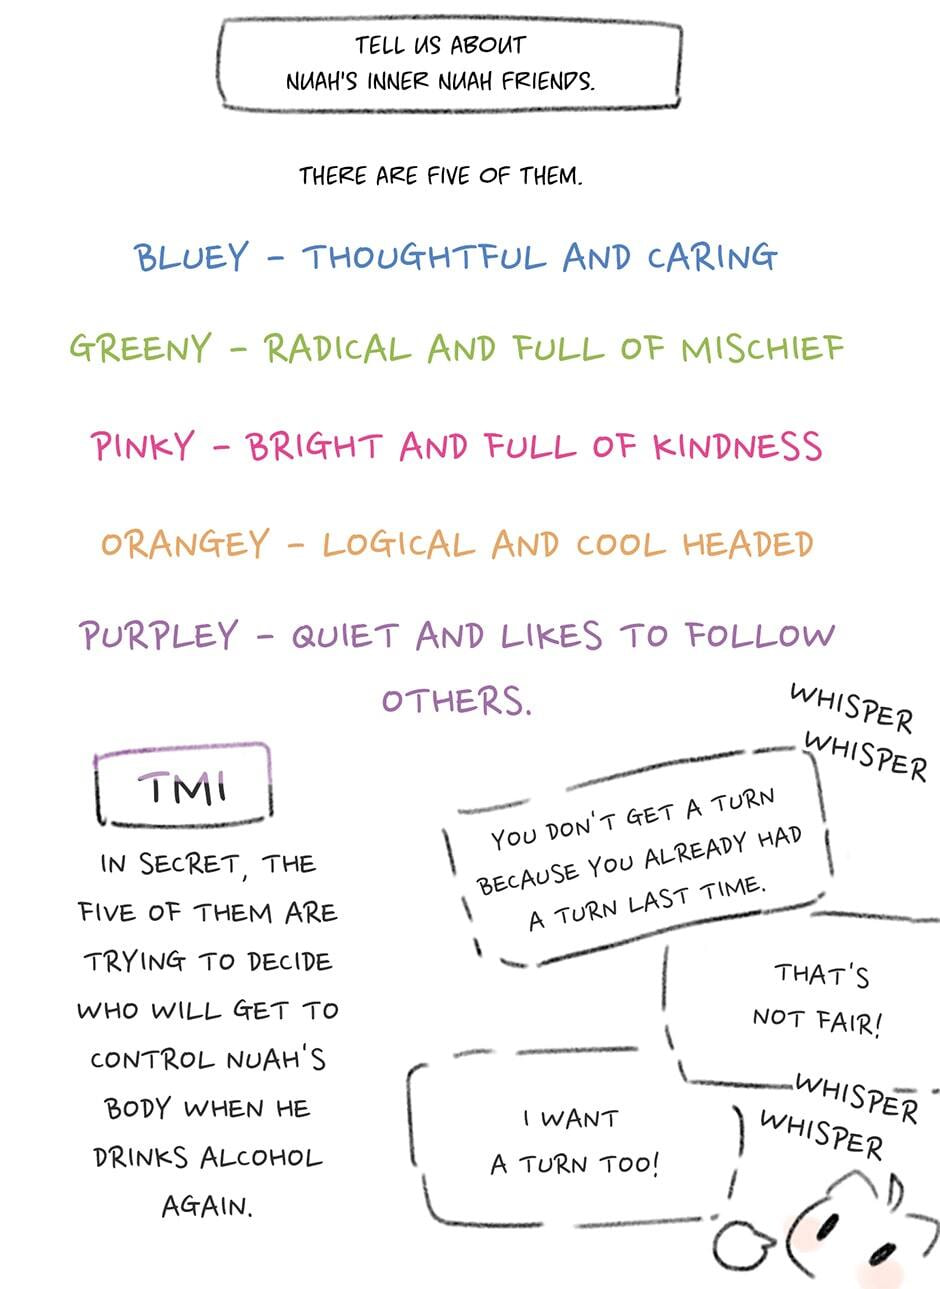 TELL US ABOUT
NUAH'S INNER NUAH FRIENDS.
THERE ARE FIVE OF THEM.
BLUEY - THOUGHTFUL AND CARING
GREENY - RADICAL AND FULL OF MISCHIEF
PINKY - BRIGHT AND FULL OF KINDNESS
ORANGEY - LOGICAL AND COOL HEADED
PURPLEY - QUIET AND LIKES TO FOLLOW
OTHERS.
TMI
IN SECRET, THE
FIVE OF THEM ARE
TRYING TO DECIDE
WHO WILL GET TO
CONTROL NUAH'S
BODY WHEN HE
DRINKS ALCOHOL
AGAIN.
WHISPER
WHISPER
YOU DON'T GET A TURN
BECAUSE YOU ALREADY HAD
A TURN LAST TIME.
THAT'S
NOT FAIR!
WHISPER
WHISPER
I WANT
A TURN TOO!